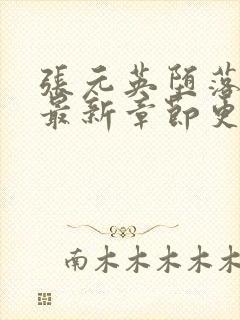 張元英堕落
最新章節更
南木木木木木